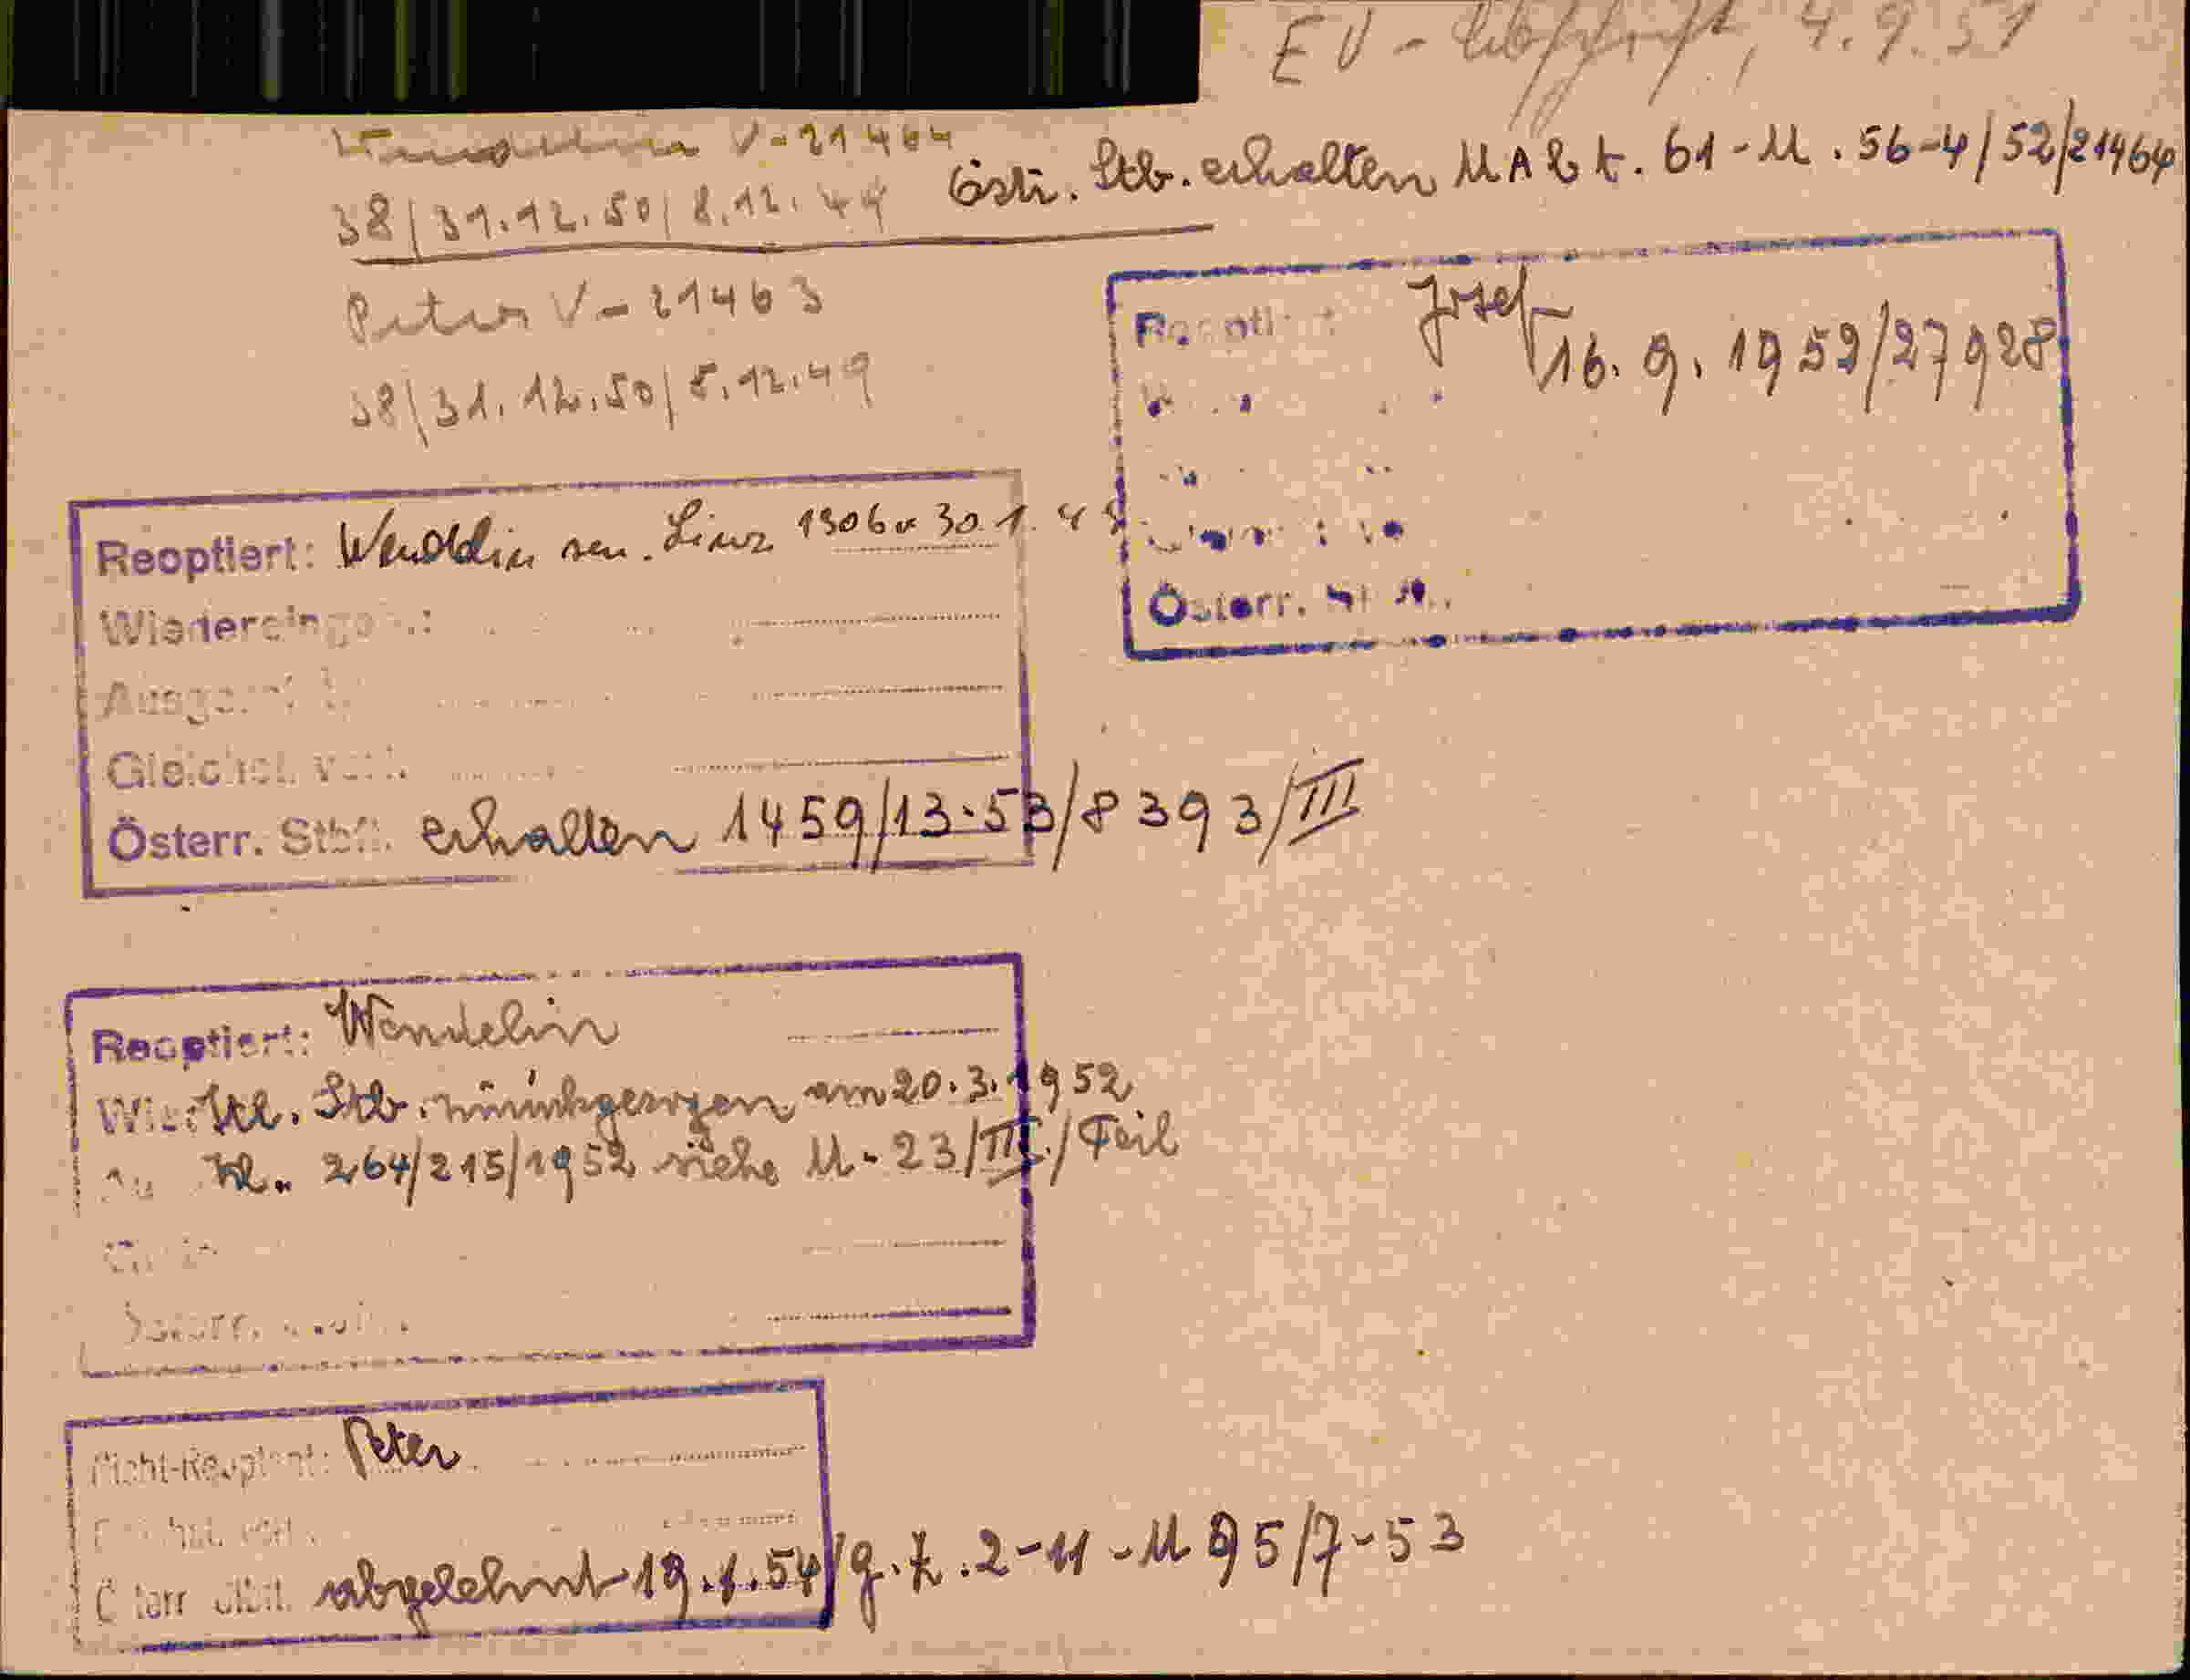 EV - 4.9.51
V-21464
38/31.12.50/8.12.49
Östr. Stb. erhalten MAbt. 61-U. 56-4/52/21464
Peter V-21463
38/31.12.50/8.12.49
Josef
16.9.1952/27928
Österr.
Reoptiert: Wendelin sen. Linz 1306 v 30.1.
Wiedereingeb.:
Gleichst. verl.
Österr. Stbft. erhalten 1459/13-53/8393/III
Reoptiert: Wendelin
Stb. zurückgezogen am 20.3.1952
Zl. 264/215/1952 siehe U-23/III./Teil
Österr.
Nicht-Reoptant: Peter
Österr. Stbft. abgelehnt 19.1.54/g.Z.2-11-U95/7-53